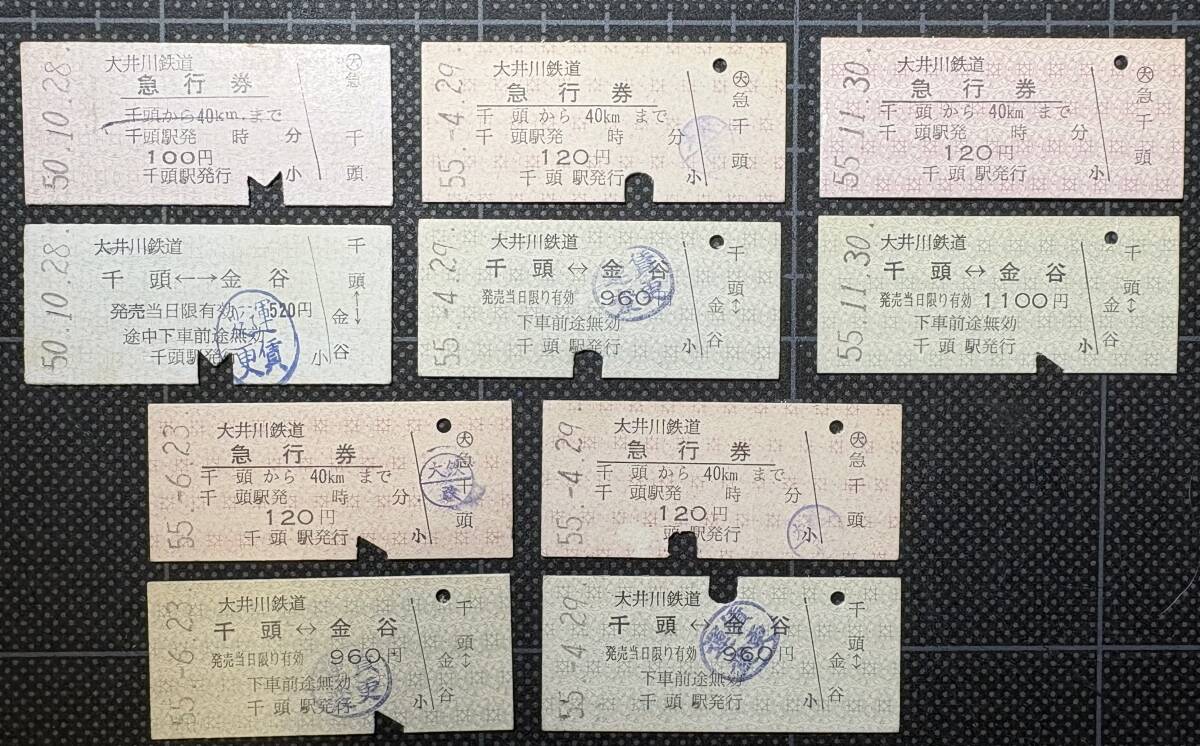 50.10.28.
大井川鉄道
急行券
千頭から40km.まで
千頭駅発 時 分
100円
千頭駅発行
小
㊅急
千頭
55.-4.29
大井川鉄道
急行券
千頭から 40km まで
千頭駅発 時 分
120円
千頭駅発行
小
急
千頭
55.11.30
大井川鉄道
急行券
千頭から 40km まで
千頭駅発 時 分
120円
千頭駅発行
小
急
千頭
50.10.28.
大井川鉄道
千頭←→金谷
発売当日限有効 520円
途中下車前途無効
千頭駅発行
小
千頭←→金谷
運賃
変更
55.-4.29.
大井川鉄道
千頭↔金谷
発売当日限り有効 960円
下車前途無効
千頭駅発行
小
千頭↔金谷
55.11.30.
大井川鉄道
千頭↔金谷
発売当日限り有効 1100円
下車前途無効
千頭駅発行
小
千頭↔金谷
55.-6.23
大井川鉄道
急行券
千頭から 40km まで
千頭駅発 時 分
120円
千頭駅発行
小
急
千頭
大鉄
55.-4.29.
大井川鉄道
急行券
千頭から 40km まで
千頭駅発 時 分
120円
頭駅発行
小
急
千頭
55.-6.23
大井川鉄道
千頭↔金谷
発売当日限り有効 960円
下車前途無効
千頭駅発行
小
千頭↔金谷
更
55.-4.29
大井川鉄道
千頭↔金谷
発売当日限り有効 960円
下車前途無効
千頭駅発行
小
千頭↔金谷